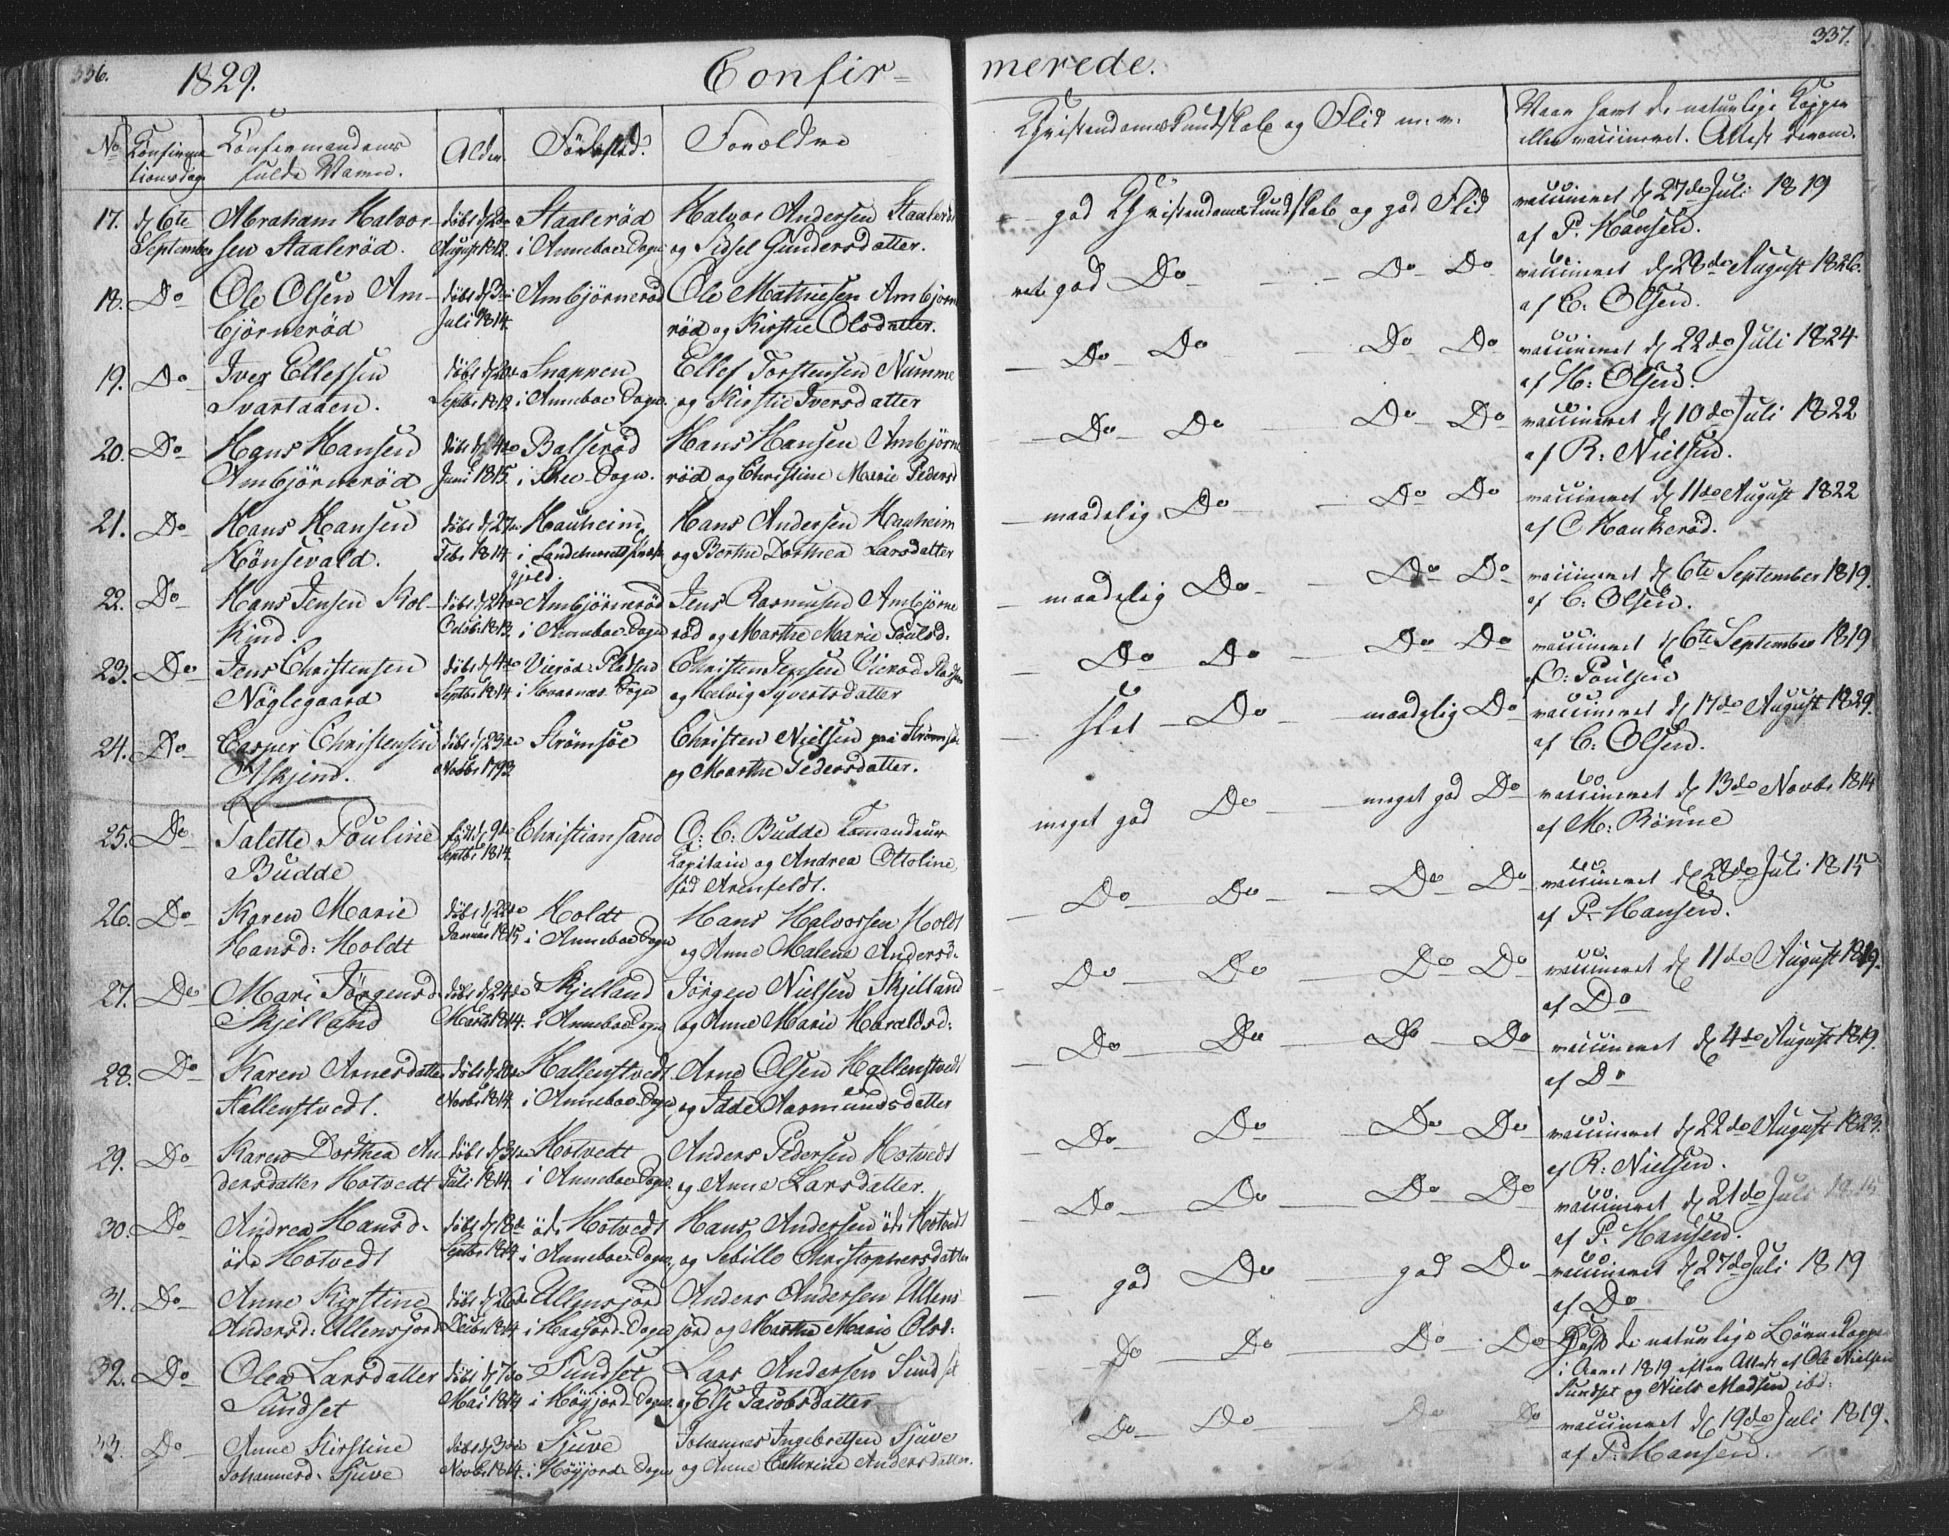 336.
1829.
Confir-
merede.
337.
No
Confirma
tionsdag
Confirmandens
fulde Navn.
Alder.
Födested.
Forældre
Christendomskundskab og Flid m. v.
Naar havt de naturlige Kopper
eller vaccineret. Attest derom.
17. d 6te Abraham Halvor- döbt d 2den Staaleröd Halvor Andersen Staaleröd
September sen Staaleröd. August 1812. i Anneboe Sogn og Sidsel Gundersdatter.
god Christendomskundskab og god Flid vaccineret d 27de Juli 1819
af P. Hansen.
18. Do Ole Olsen Am- döbt d Ambjörneröd Ole Mathiesen Ambjörne
björneröd Juli 1814. röd og Kirstie Olsdatter.
god Do - Do Do vaccineret d 28de August 1826.
af C. Olsen.
19. Do Iver Ellefsen döbt d Snappen Ellef Torstensen Numme
Svartaaen. Septbr 1812. i Anneboe Sogn. og Kirstie Iversdatter
Do Do - Do Do vaccineret d 22de Juli 1824
af H: Olsen.
20. Do Hans Hansen döbt d 4de Balseröd Hans Hansen Ambjörne
Ambjörneröd Juni 1815. i Sogn. röd og Christine Marie Pedersd
Do Do - Do Do vaccineret d 10de Juli 1822
af R: Nielsen.
21. Do Hans Hansen döbt d 27de Hauheim Hans Andersen Hauheim
Hönsevald. Febr 1814. i og Berthe Dorthea Larsdatter
gjeld.
maadelig Do - Do Do vaccineret d 11de August 1822
af O Haukeröd.
22. Do Hans Jensen Kol- döbt d 24de Ambjörneröd Jens Rasmusen Ambjörne
kind. Octobr 1813. i Anneboe Sogn röd og Marthe Marie Poulsd.
maadelig Do - Do Do vaccineret d 6te September 1819.
af C: Olsen.
23. Do Jens Christensen döbt d 4de Vieröd-Pladsen Christen Jensen Vieröd Pladsen
Nöglegaard Septbr 1814. i Kvarnæs Sogn og Helvig Syvertsdatter
Do Do - Do Do vaccineret d 6te September 1819
af C: Poulsen
24. Do Casper Christensen döbt d 23de Strömsöe Christen Nielsen paa Strömsö
Askjend. Novbr 1793 og Marthe Pedersdatter.
slet - Do - maadelig Do vaccineret d 17de August 1829.
af C: Olsen.
25. Do Talette Pouline född d 9de Christiansand O: C: Budde Comandeur
Budde Septbr 1814. Capitain og Andrea Ottoline,
föd Arenfeldt.
meget god Do - meget god Do vaccineret d 13de Novbr 1814
af M: Rönne
26. Do Karen Marie döbt d 22de Holdt Hans Halvorsen Holdt
Hansd: Holdt Januar 1815. i Anneboe Sogn og Anne Malene Andersd.
Do Do - Do Do vaccineret d 28de Juli 1815
af P. Hansen.
27. Do Mari Jörgensd. döbt d 24de Skjelland Jörgen Nielsen Skjelland
Skjelland Marts 1814. i Anneboe Sogn og Anne Marie Haraldsd:
Do Do - Do Do vaccineret d 11de August 1819.
af Do
28. Do Karen Arnesdatter döbt d 20de Hallenstvedt Arne Olsen Hallenstvedt
Hallenstvedt. Novbr 1814. i Anneboe Sogn og Idde Aasmundsdatter
Do Do - Do Do vaccineret d 4de August 1819.
af Do
29. Do Karen Dorthea An döbt d 31te Hotvedt Anders Pedersen Hotvedt
dersdatter Hotvedt Juli 1814. i Anneboe Sogn. og Anne Larsdatter.
Do Do - Do Do vaccineret d 22de August 1823.
af R: Nielsen.
30. Do Andrea Hansd. döbt d 18de öde Hotvedt Hans Andersen öde Hotvedt
öde Hotvedt Septbr 1814 i Anneboe Sogn, og Sebille Christophersdatter
Do Do - Do Do vaccineret d 21de Juli 1815
af P. Hansen.
31. Do Anne Kirstine döbt d 26de Ullensjord Anders Andersen Ullens
Andersd: Ullensjord Decbr 1814 i Haasjord Sogn jord og Marthe Marie Olsd:
god Do - god Do vaccineret d 27de Juli 1819
af Do
32. Do Olea Larsdatter döbt d 7de Sundset Lars Andersen Sundset
Sundset Mai 1814 i Höyjord Sogn. og Else Jacobsdatter
Do Do - Do Do havt de naturlige Börnekopper
i Aaret 1819 efter Attest af Ole Nielsen
Sundset og Niels Madsen ibd:
33. Do Anne Kirstine döbt d 30de Sjuve Johannes Ingebretsen Sjuve
Johannesd. Sjuve Novbr 1814. i Höyjord Sogn og Anne Cathrine Andersdatter.
Do Do - Do Do vaccineret d 19de Juli 1819.
af P. Hansen.